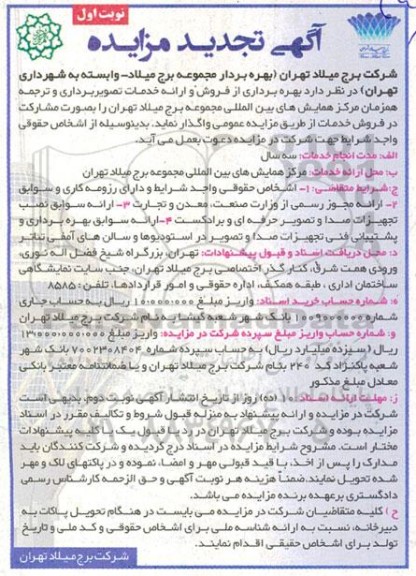 نوبت اول
آگهی تجدید مزایده
شرکت برج میلاد تهران (بهره بردار مجموعه برج میلاد- وابسته به شهرداری
تهران) در نظر دارد بهره برداری از فروش و ارائه خدمات تصویربرداری و ترجمه
همزمان مرکز همایش های بین المللی مجموعه برج میلاد تهران را بصورت مشارکت
در فروش خدمات از طریق مزایده عمومی واگذار نماید. بدینوسیله از اشخاص حقوقی
واجد شرایط جهت شرکت در مزایده دعوت بعمل می آید.
الف: مدت انجام خدمات: سه سال
ب: محل ارائه خدمات: مرکز همایش های بین المللی مجموعه برج میلاد تهران
ج: شرایط متقاضی: ۱- اشخاص حقوقی واجد شرایط و دارای رزومه کاری و سوابق
۲- ارائه مجوز رسمی از وزارت صنعت، معدن و تجارت ۳- ارائه سوابق نصب
تجهیزات صدا و تصویر حرفه ای و برادکست ۴-ارائه سوابق بهره برداری و
پشتیبانی فنی تجهیزات صدا و تصویر در استودیوها و سالن های آمفی تئاتر
د: محل دریافت اسناد و قبول پیشنهادات: تهران، بزرگراه شیخ فضل اله نوری،
ورودی همت شرق، کنار گذر اختصاصی برج میلاد تهران، جنب سایت نمایشگاهی
ساختمان اداری، طبقه همکف، اداره حقوقی و امور قراردادها، تلفن: ۸۵۸۵
ه: شماره حساب خرید اسناد: واریز مبلغ ۱۰،۰۰۰،۰۰۰ ریال به حساب جاری
بانک شهر شعبه کیشا به نام شرکت برج میلاد تهران
و: شماره حساب واریز مبلغ سپرده شرکت در مزایده: واریز مبلغ ۱۳،۰۰۰،۰۰۰،۰۰۰
ریال (سیزده میلیارد ریال) به حساب سپرده شماره ۷۰۰۲۳۰۸۴۰۴ بانک شهر
شعبه پاکنژاد کد ۲۴۰ بنام شرکت برج میلاد تهران و یا ضمانتنامه معتبر بانکی
معادل مبلغ مذکور
ز: مهلت ارائه اسناد: ۱۰ (ده) روز از تاریخ انتشار آگهی نوبت دوم. بدیهی است
شرکت در مزایده و ارائه پیشنهاد به منزله قبول شروط و تکالیف مقرر در اسناد
مزایده بوده و شرکت برج میلاد تهران در رد یا قبول یک یا کلیه پیشنهادات
مختار است. مشروح شرایط مزایده در اسناد درج گردیده و شرکت کنندگان باید
مدارک را پس از اخذ، با قید قبولی مهر و امضاء نموده و در پاکتهای لاک و مهر
شده تحویل نمایند. ضمناً هزینه هر نوبت آگهی و حق الزحمه کارشناس رسمی
دادگستری برعهده برنده مزایده می باشد.
ح) کلیه متقاضیان شرکت در مزایده می بایست در هنگام تحویل پاکات به
دبیرخانه، نسبت به ارائه شناسه ملی برای اشخاص حقوقی و کد ملی و تاریخ
تولد برای اشخاص حقیقی اقدام نمایند.
شرکت برج میلاد تهران